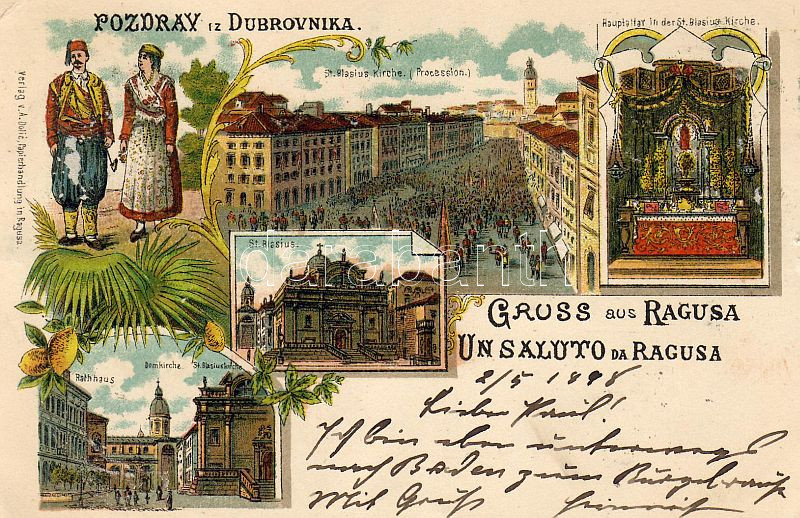 POZDRAV IZ DUBROVNIKA.
Hauptaltar in der St. Blasius Kirche.
St. Blasius Kirche. (Procession.)
Verlag v. A. Dolić, Papierhandlung in Ragusa.
St. Blasius.
darabanth
GRUSS aus RAGUSA
UN SALUTO DA RAGUSA
Rathhaus
Domkirche
St. Blasiuskirche
2/5 1898
Lieber Paul!
Ich bin eben unterwegs
nach Baden zum
Mit Gruß Heinrich